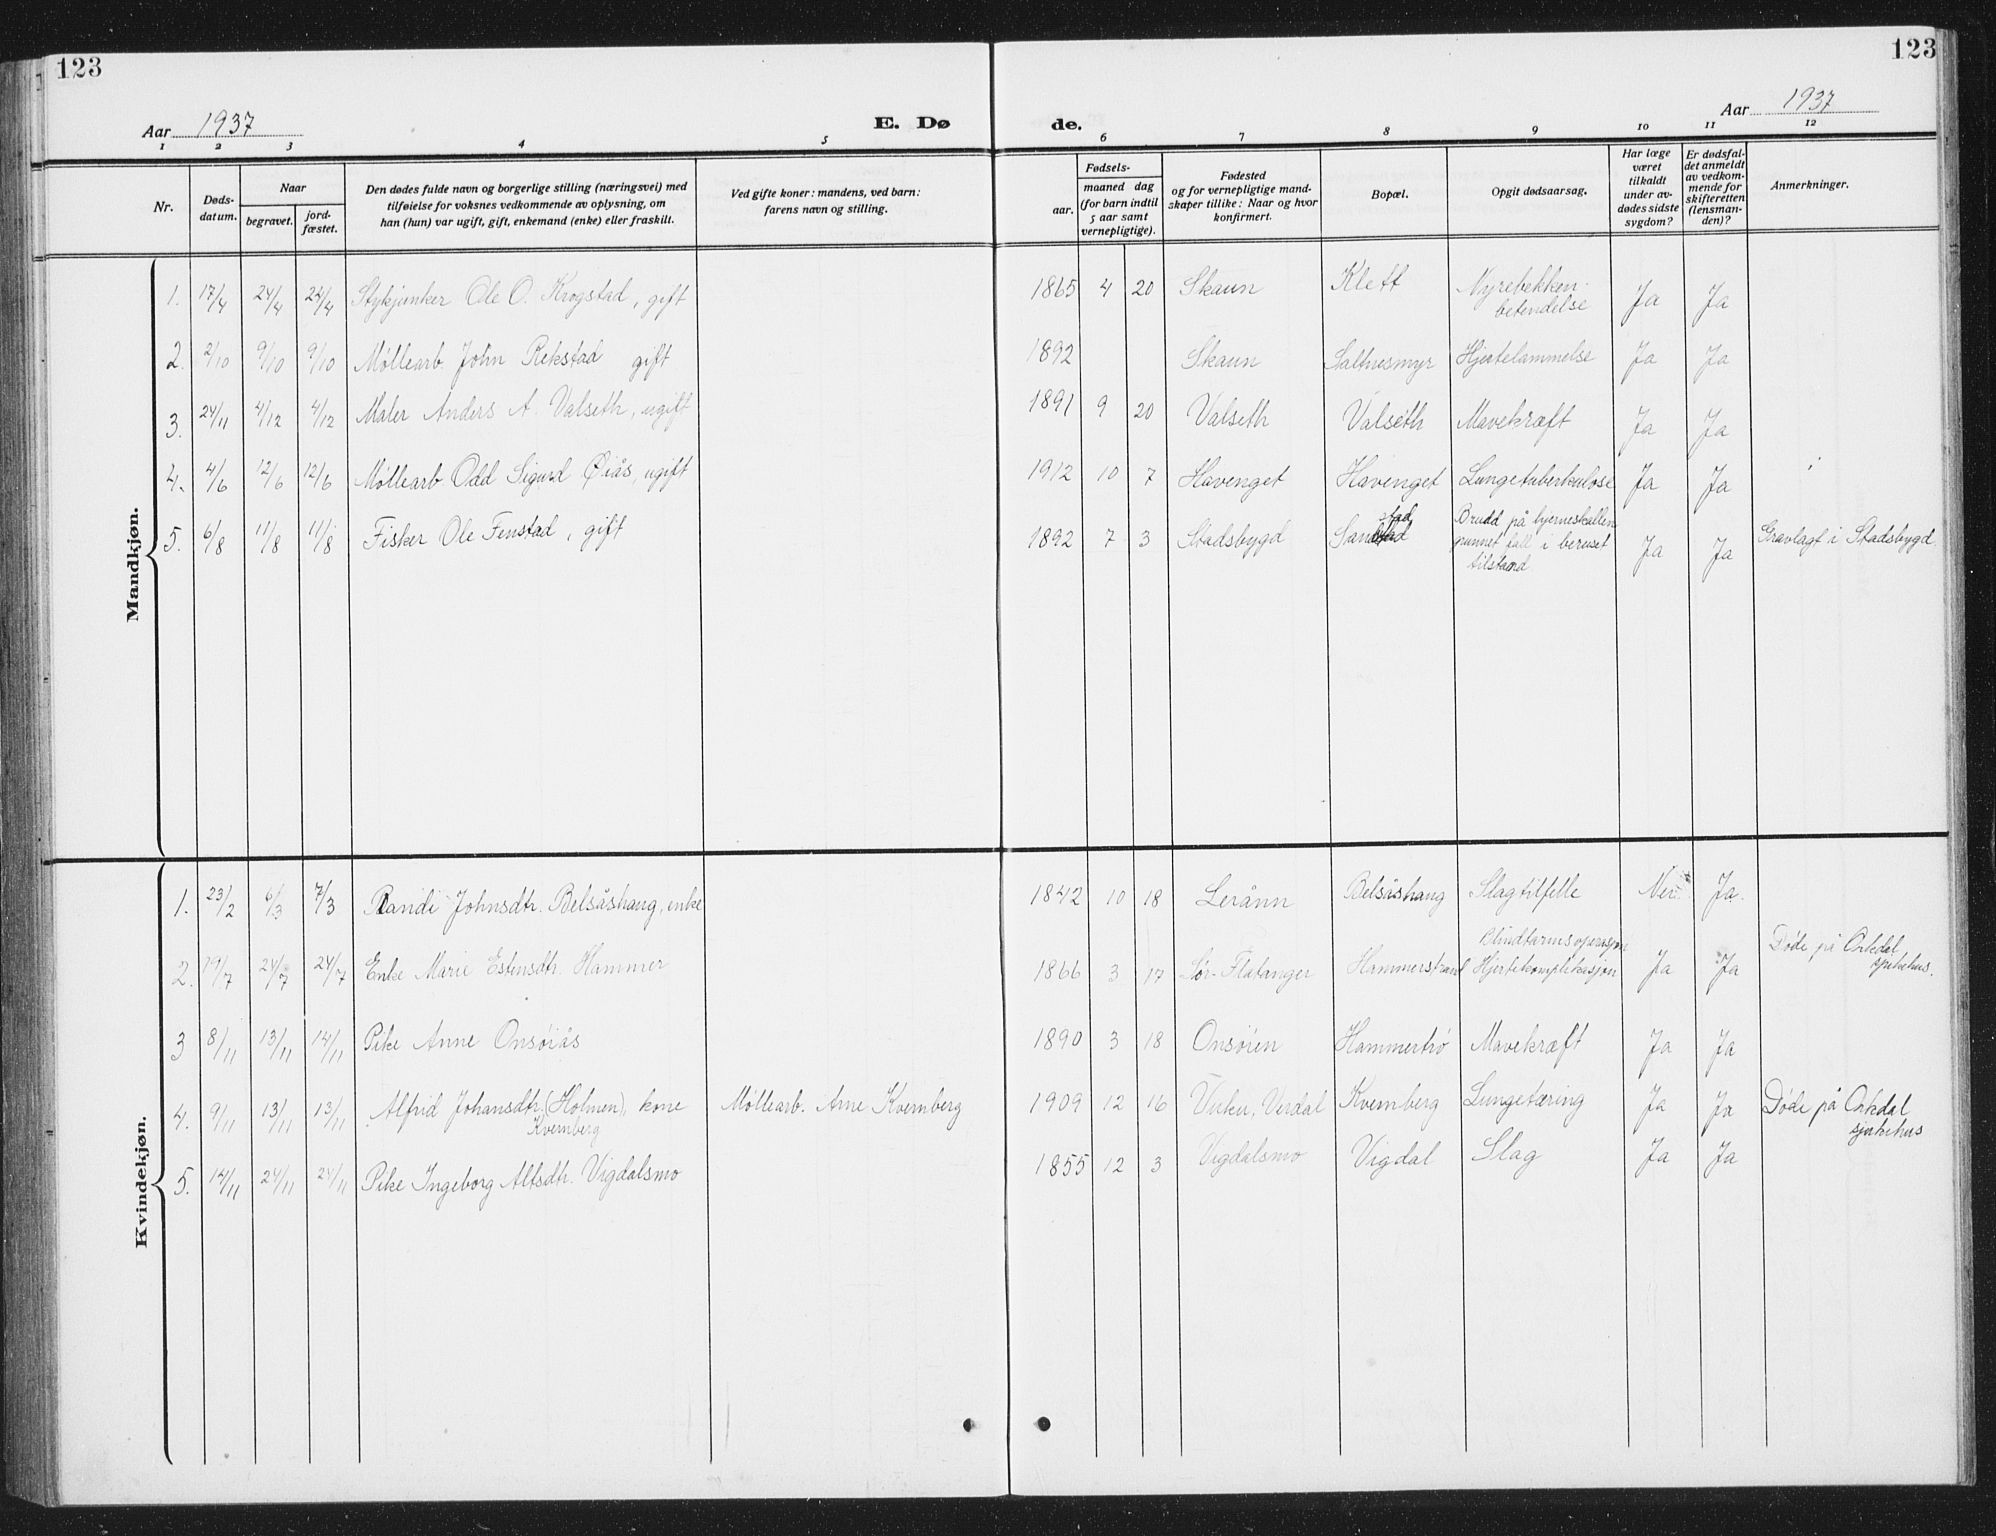 123
123
Aar 1937
E. Dø
de.
Aar 1937
1 2 3 4 5 6 7 8 9 10 11 12
Nr.
Døds-
datum.
Naar
begravet.
jord-
fæstet.
Den dødes fulde navn og borgerlige stilling (næringsvei) med
tilføielse for voksnes vedkommende av oplysning, om
han (hun) var ugift, gift, enkemand (enke) eller fraskilt.
Ved gifte koner: mandens, ved barn:
farens navn og stilling.
Fødsels-
aar.
maaned dag
(for barn indtil
5 aar samt
vernepligtige).
Fødested
og for vernepligtige mand-
skaper tillike: Naar og hvor
konfirmert.
Bopæl.
Opgit dødsaarsag.
Har læge
været
tilkaldt
under av-
dødes sidste
sygdom?
Er dødsfal-
det anmeldt
av vedkom-
mende for
skifteretten
(lensman-
den)?
Anmerkninger.
Mandkjøn.
1. 17/4 24/4 24/4 Stykjunker Ole O. Krogstad, gift 1865 4 20 Skaun Klett Nyrebekken-
betendelse Ja Ja
2. 2/10 9/10 9/10 Møllearb. John Rekstad gift 1892 Skaun Saltnesmyr Hjertelammelse Ja Ja
3. 24/11 4/12 4/12 Maler Anders A. Valseth, ugift 1891 9 20 Valseth Valseth Mavekræft Ja Ja
4. 4/6 12/6 12/6 Møllearb Odd Sigurd Øiås, ugift 1912 10 7 Havenget Havenget Lungetuberkulose Ja Ja
5. 6/8 11/8 11/8 Fisker Ole Fenstad, gift 1892 7 3 Stadsbygd Sandstad Brudd på hjerneskallen
grunnet fall i beruset
tilstand Ja Ja Gravlagt i Stadsbygd.
Kvindekjøn.
1. 23/2 6/3 7/3 Randi Johnsdtr. Belsåshaug, enke 1842 10 18 Lerånn Belsåshaug Slagtilfelle Nei Ja.
2. 19/7 24/7 24/7 Enke Marie Estensdtr. Hammer 1866 3 17 Sør-Flatanger Hammerstrand Blindtarmsoperasjon
Hjertekomplikasjon Ja Ja Døde på Orkdal
sjukehus.
3 8/11 13/11 14/11 Pike Anne Onsøiås 1890 3 18 Onsøien Hammertrø Mavekræft Ja Ja
4. 9/11 13/11 13/11 Alfrid Johansdtr. (Holmen), kone
Kvernberg
Møllearb. Arne Kvernberg 1909 12 16 Vuku, Verdal Kvernberg Lungetæring Ja Ja Døde på Orkdal
sjukehus
5. 14/11 24/11 24/11 Pike Ingeborg Altsdtr. Vigdalsmo 1855 12 3 Vigdalsmo Vigdal Slag Ja Ja